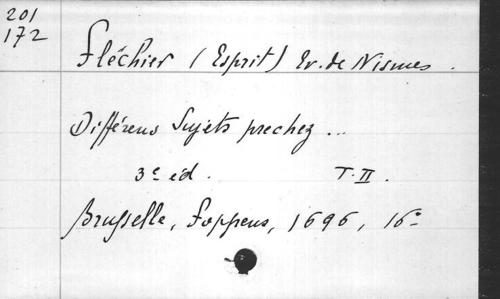 201
172
Fléchier (Esprit) Ev. de Nismes.
Différens Sujets prechez...
3e éd. T. II.
Brusselle, Foppens, 1696, 16°